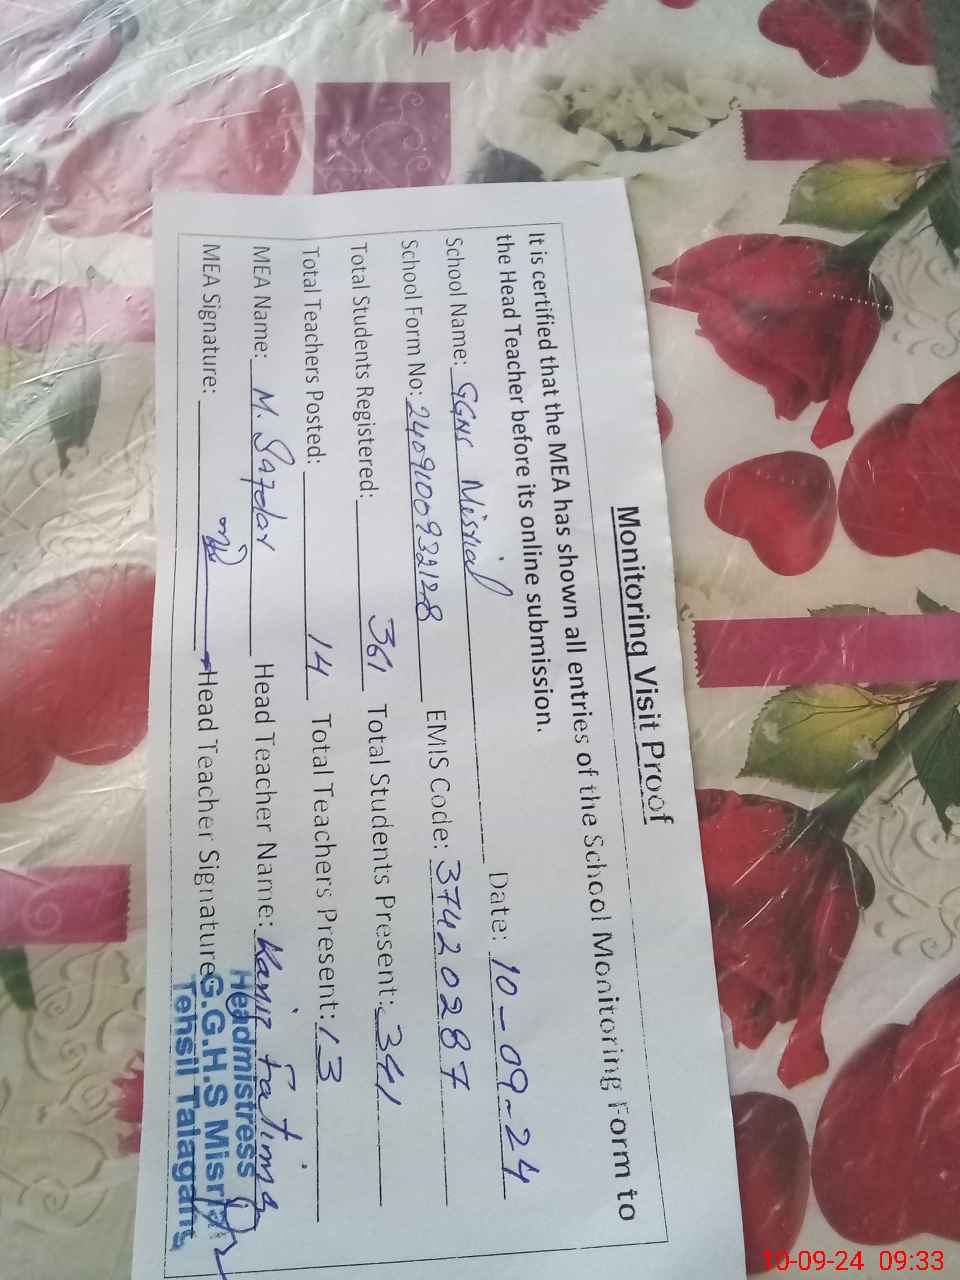 Monitoring Visit Proof
It is certified that the MEA has shown all entries of the School Monitoring Form to
the Head Teacher before its online submission.
School Name: GGHS Misrial Date: 10-09-24
School Form No: 2409100932128 EMIS Code: 37420287
Total Students Registered: 361 Total Students Present: 341
Total Teachers Posted: 14 Total Teachers Present: 13
MEA Name: M. Safdar Head Teacher Name: Kaniz Fatima
MEA Signature: Head Teacher Signature
Headmistress
G.G.H.S Misrial
Tehsil Talagang
10-09-24 09:33